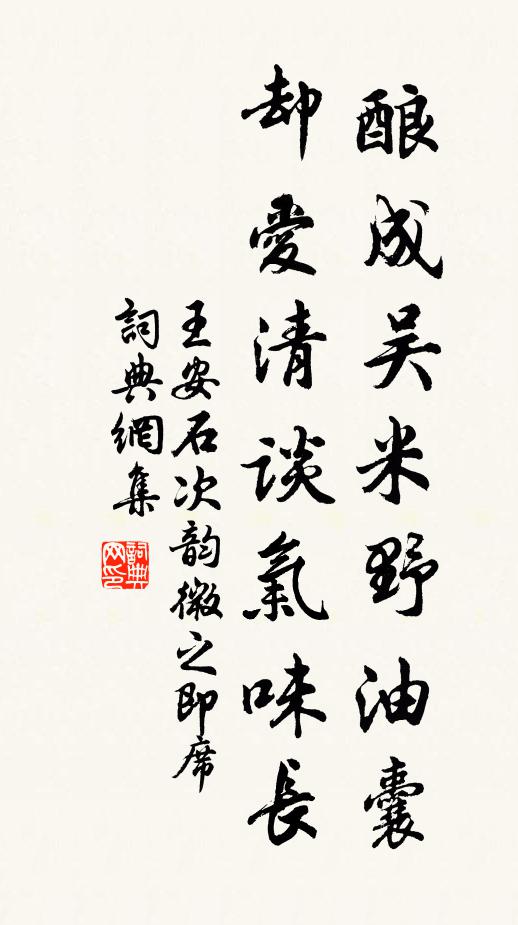 酿成吴米野油囊
却愛清談氣味長
王安石次韵微之即席
詞典網集
詞典
网印